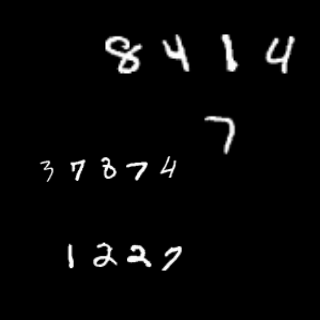 8414
7
37874
1227